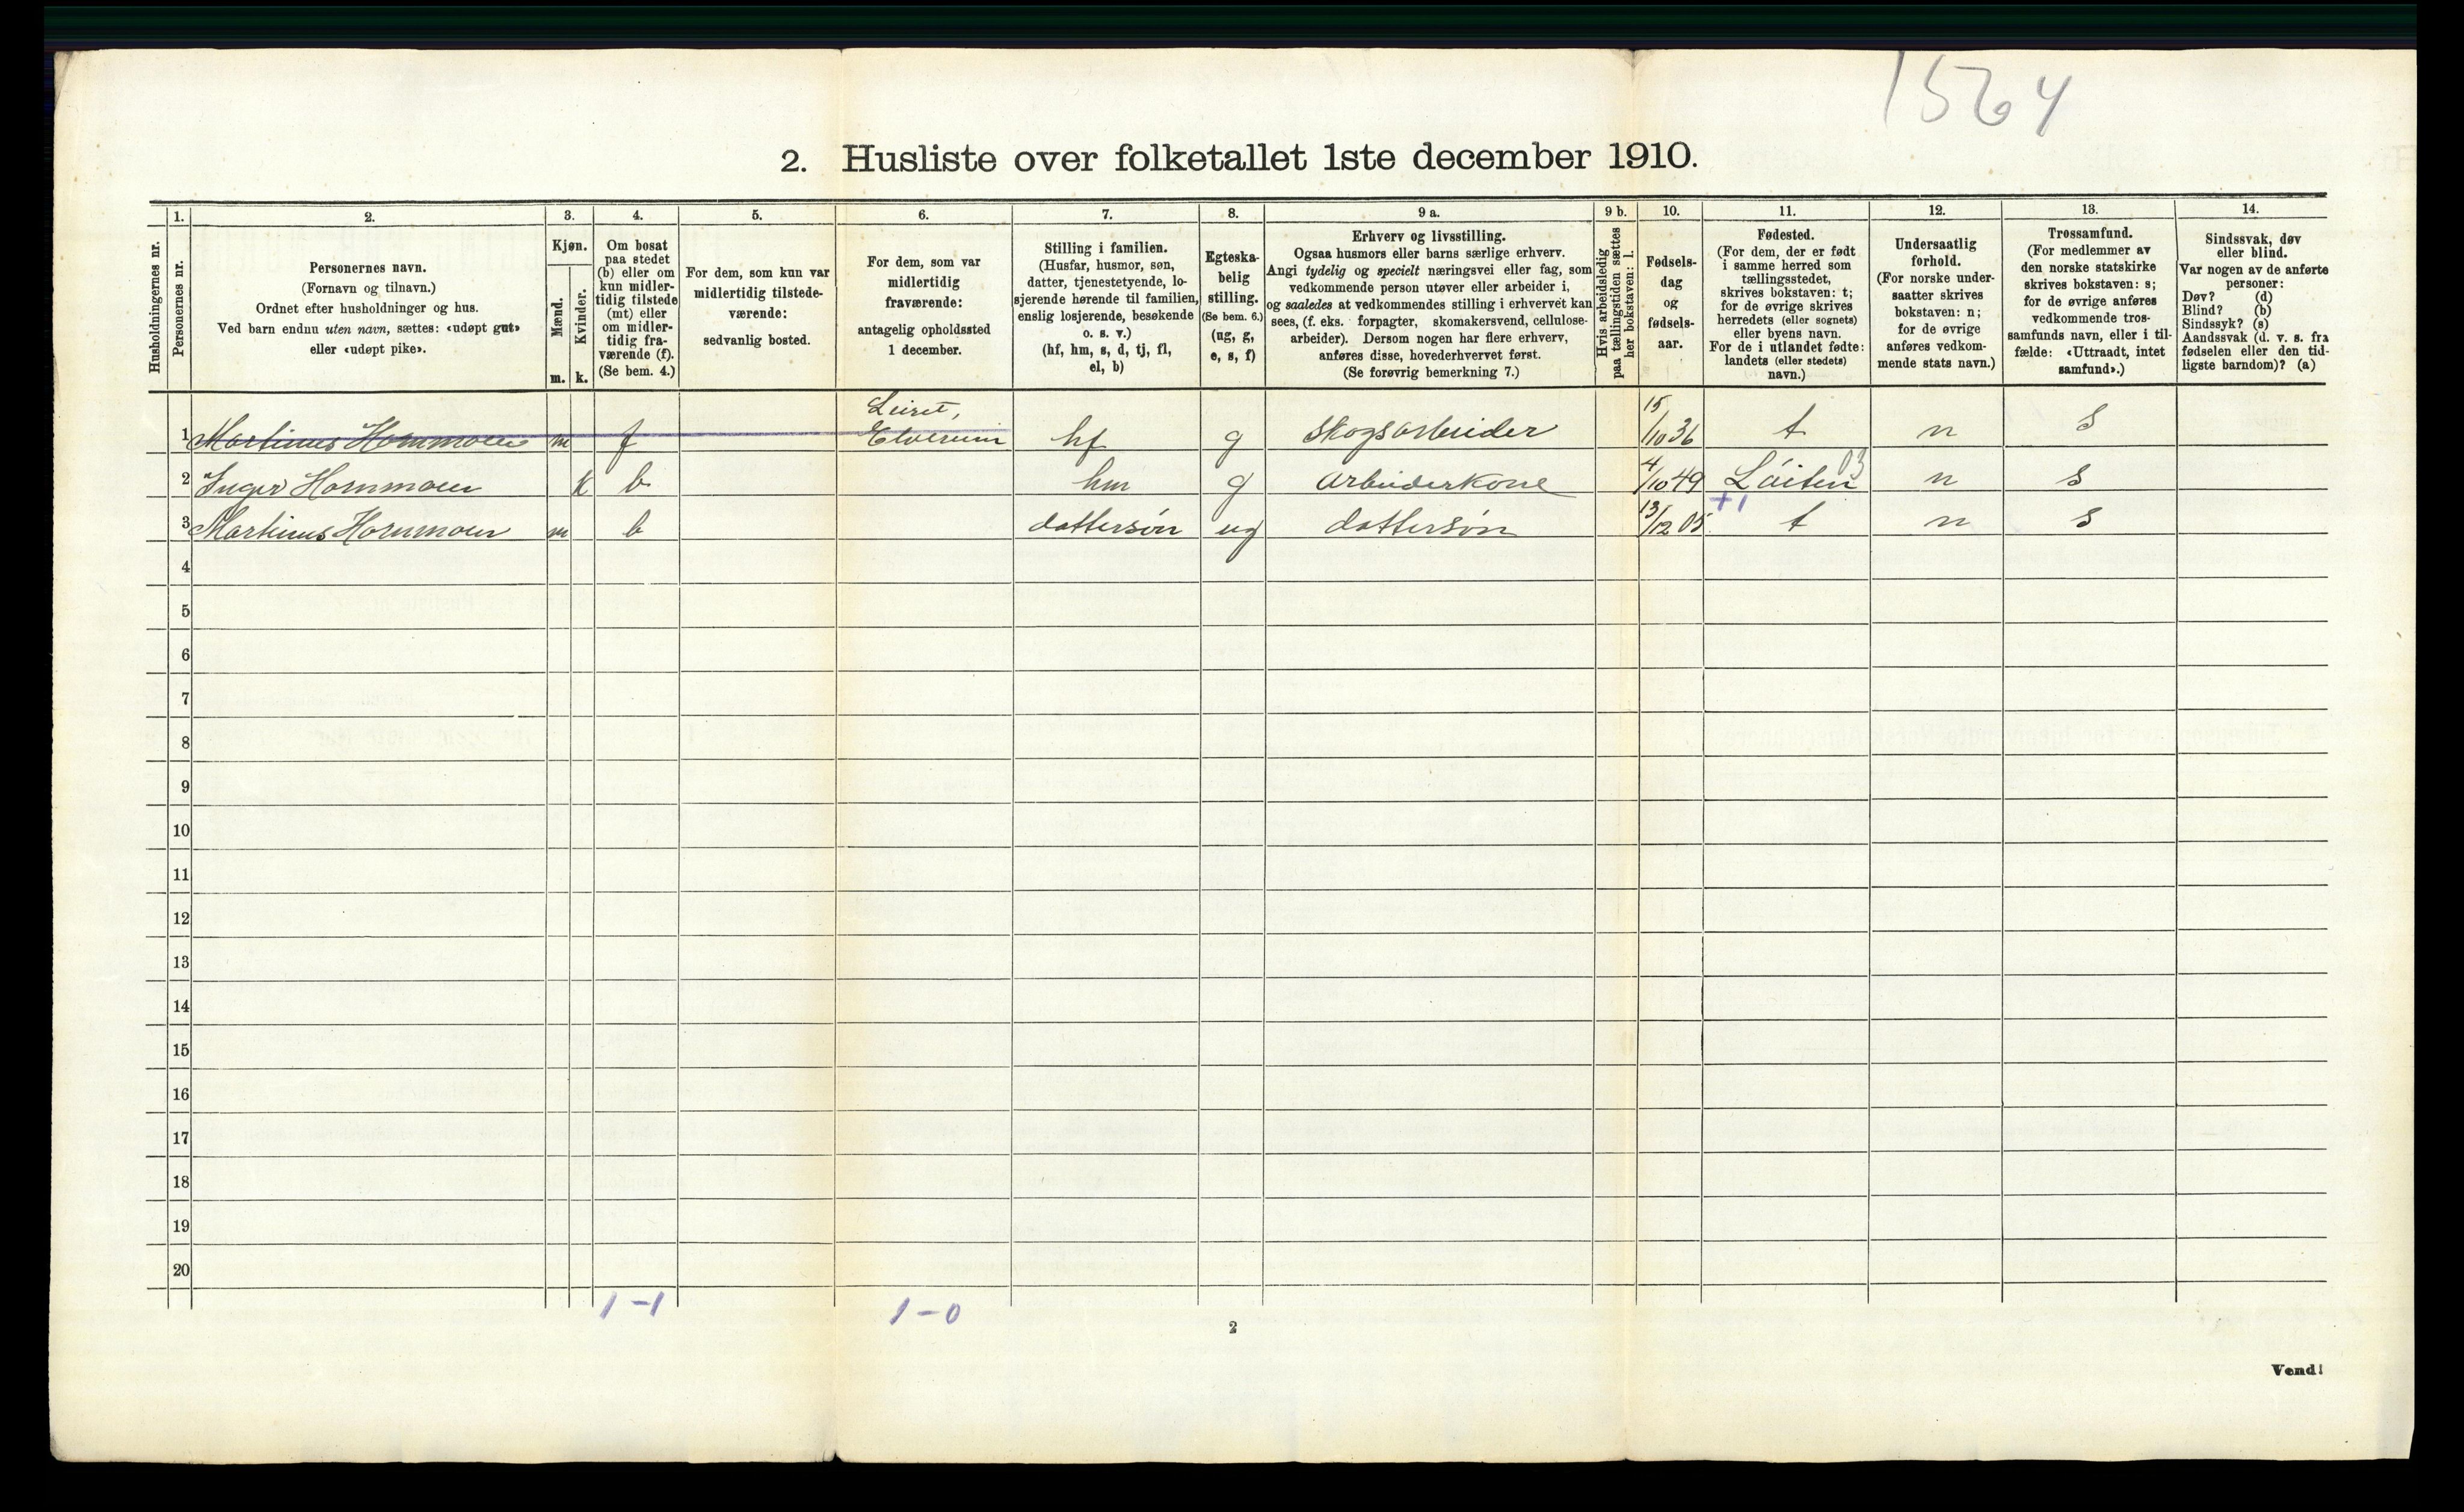 1564
2. Husliste over folketallet 1ste december 1910.
Husholdningernes nr.
1.
Personernes nr.
2.
Personernes navn.
(Fornavn og tilnavn.)
Ordnet efter husholdninger og hus.
Ved barn endnu uten navn, sættes: «udøpt gut»
eller «udøpt pike».
3.
Kjøn.
Mænd.
Kvinder.
m. k.
4.
Om bosat
paa stedet
(b) eller om
kun midler-
tidig tilstede
(mt) eller
om midler-
tidig fra-
værende (f).
(Se bem. 4.)
5.
For dem, som kun var
midlertidig tilstede-
værende:
sedvanlig bosted.
6.
For dem, som var
midlertidig
fraværende:
antagelig opholdssted
1 december.
7.
Stilling i familien.
(Husfar, husmor, søn,
datter, tjenestetyende, lo-
sjerende hørende til familien,
enslig losjerende, besøkende
o. s. v.)
(hf, hm, s, d, tj, fl,
el, b)
8.
Egteska-
belig
stilling.
(Se bem. 6.)
(ug, g,
e, s, f)
9 a.
Erhverv og livsstilling.
Ogsaa husmors eller barns særlige erhverv.
Angi tydelig og specielt næringsvei eller fag, som
vedkommende person utøver eller arbeider i,
og saaledes at vedkommendes stilling i erhvervet kan
sees, (f. eks. forpagter, skomakersvend, cellulose-
arbeider). Dersom nogen har flere erhverv,
anføres disse, hovederhvervet først.
(Se forøvrig bemerkning 7.)
9 b.
Hvis arbeidsledig
paa tællingstiden sættes
her bokstaven: l.
10.
Fødsels-
dag
og
fødsels-
aar.
11.
Fødested.
(For dem, der er født
i samme herred som
tællingsstedet,
skrives bokstaven: t;
for de øvrige skrives
herredets (eller sognets)
eller byens navn.
For de i utlandet fødte:
landets (eller stedets)
navn.)
12.
Undersaatlig
forhold.
(For norske under-
saatter skrives
bokstaven: n;
for de øvrige
anføres vedkom-
mende stats navn.)
13.
Trossamfund.
(For medlemmer av
den norske statskirke
skrives bokstaven: s;
for de øvrige anføres
vedkommende tros-
samfunds navn, eller i til-
fælde: «Uttraadt, intet
samfund».)
14.
Sindssvak, døv
eller blind.
Var nogen av de anførte
personer:
Døv? (d)
Blind? (b)
Sindssyk? (s)
Aandssvak (d. v. s. fra
fødselen eller den tid-
ligste barndom)? (a)
1 Martinus Hornmoen m f Leiret, Elverum hf g Skogsarbeider 15/10 36 t n s
2 Inger Hornmoen k b hm g Arbeiderkone 4/10 49 Løiten 03 n s
+1
3 Martinus Hornmoen m b dattersön ug dattersön 13/12 05 t n s
4
5
6
7
8
9
10
11
12
13
14
15
16
17
18
19
20
1-1 1-0
2
Vend!